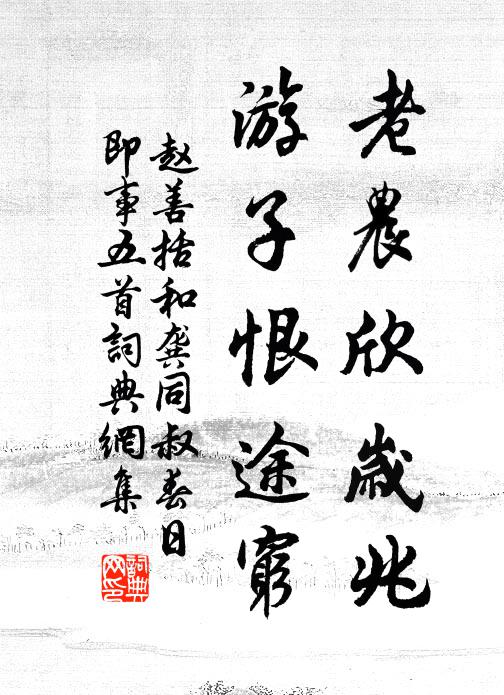 老農欣歲兆
游子恨途窮
赵善括和龚同叔春日
即事五首詞典網集
詞典网印